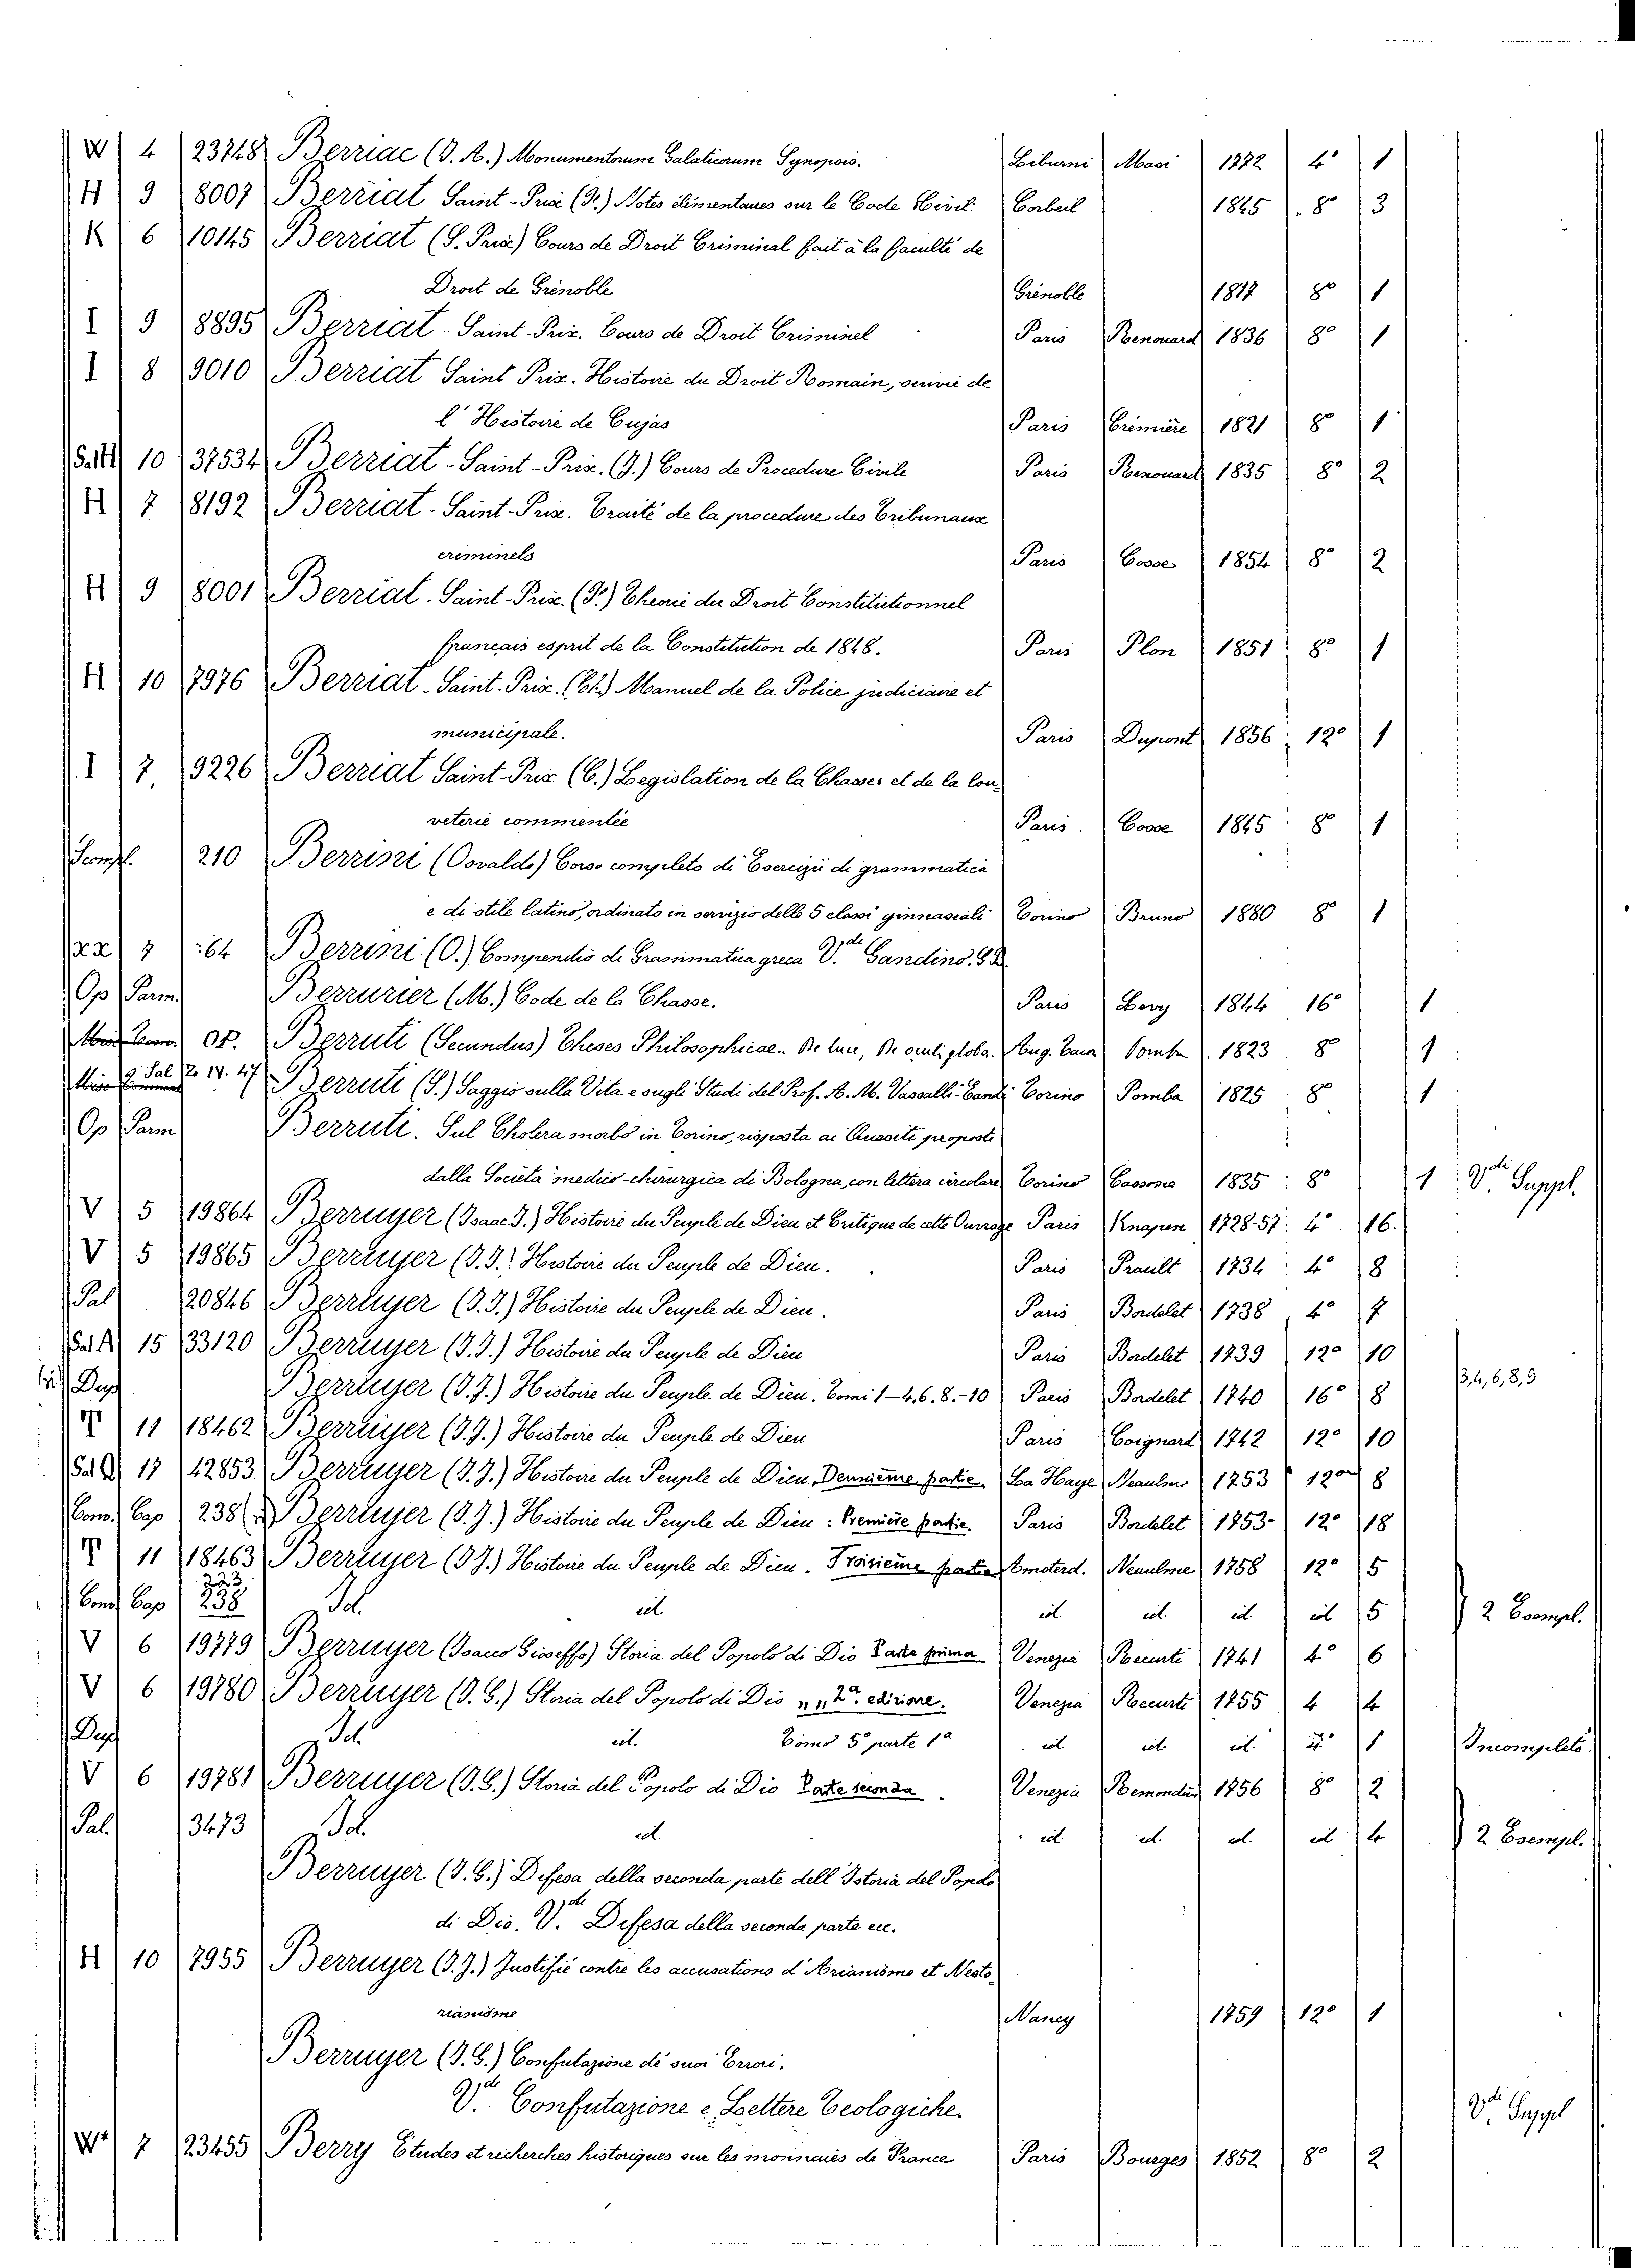 W 4 23748 Berriac (J. A.) Monumentorum Galaticorum Synopsis. Liburni Masi 1772 4° 1
H 9 8007 Berriat Saint-Prix (F.) Notes élémentaires sur le Code Civil. Corbeil 1845 8° 3
K 6 10145 Berriat (S. Prix) Cours de Droit Criminal fait à la faculté de
Droit de Grenoble Grenoble 1817 8° 1
I 9 8895 Berriat-Saint-Prix. Cours de Droit Criminel Paris Renouard 1836 8° 1
I 8 9010 Berriat Saint Prix. Histoire du Droit Romain, suivie de
l'Histoire de Cujas Paris 1821 8° 1
Sal H 10 37534 Berriat-Saint-Prix. (J.) Cours de Procedure Civile Paris Renouard 1835 8° 2
H 7 8192 Berriat-Saint-Prix. Traité de la procedure des Tribunaux
criminels Paris Cosse 1854 8° 2
H 9 8001 Berriat-Saint-Prix. (F.) Theorie du Droit Constitutionnel
français esprit de la Constitution de 1848. Paris Plon 1851 8° 1
H 10 7976 Berriat-Saint-Prix. (Ch.) Manuel de la Police judiciaire et
municipale. Paris Dupont 1856 12° 1
I 7. 9226 Berriat Saint-Prix (C.) Legislation de la Chasse et de la Lou-
veterie commentée Paris. Cosse 1845 8° 1
210 Berrini (Osvaldo) Corso completo di Esercizii di grammatica
e di stile latino, ordinato in servizio delle 5 classi ginnasiali Torino Bruno 1880 8 1
64 Berrini (O.) Compendio di Grammatica greca V.de Gandino. G.B.
Op Parm. Berrurier (M.) Code de la Chasse. Paris Levy 1844 16° 1
OP. Berruti (Secundus) Theses Philosophicae. De luce, De oculi globo. Aug. Taur Pomba 1823 8° 1
Berruti (S.) Saggio sulla Vita e sugli Studi del Prof. A. M. Vassalli-Eandi Torino Pomba 1825 8° 1
Op Parm Berruti. Sul Cholera morbo in Torino, risposta ai Quesiti proposti
dalla Società medico-chirurgica di Bologna, con lettera circolare Torino Cassone 1835 8° 1 V.di Suppl.
V 5 19864 Berruyer (Isaac J.) Histoire du Peuple de Dieu et Critique de cette Ouvrage Paris Knapen 1728-57. 4° 16.
V 5 19865 Berruyer (J. J.) Histoire du Peuple de Dieu. Paris Prault 1734 4° 8
Pal 20846 Berruyer (J. J.) Histoire du Peuple de Dieu. Paris Bordelet 1738 4° 7
Sal A 15 33120 Berruyer (J. J.) Histoire du Peuple de Dieu Paris Bordelet 1739 12° 10
Dup Berruyer (J. J.) Histoire du Peuple de Dieu. Tomi 1-4, 6. 8.-10 Paris Bordelet 1740 16° 8 3,4,6,8,9
T 11 18462 Berruyer (J. J.) Histoire du Peuple de Dieu Paris Coignard 1742 12° 10
Sal Q 17 42853. Berruyer (J. J.) Histoire du Peuple de Dieu, partie. La Haye Neaulme 1753 12° 8
Conv. Cap 238 Berruyer (J. J.) Histoire du Peuple de Dieu: Première partie. Paris Bordelet 1753- 12° 18
T 11 18463 Berruyer (J. J.) Histoire du Peuple de Dieu. Troisieme partie Amsterd. Neaulme 1758 12° 5
Conv Cap 238 Id. id. id. id. id id 5 2 Esempl.
V 6 19779 Berruyer (Isacco Gioseffo) Storia del Popolo di Dio Parte prima Venezia Recurti 1741 4° 6
V 6 19780 Berruyer (J. G.) Storia del Popolo di Dio „ „ 2a. edizione. Venezia Recurti 1755 4 4
Dup Id. id. Tomo 5° parte 1a id id id. 4° 1 Incompleto.
V 6 19781 Berruyer (J. G.) Storia del Popolo di Dio Parte seconda. Venezia Remondini 1756 8° 2
Pal. 3473 Id. id. id. id. id. id 4 2 Esempl.
Berruyer (J. G.) Difesa della seconda parte dell'Istoria del Popolo
di Dio. V.de Difesa della seconda parte ecc.
H 10 7955 Berruyer (J. J.) Justifié contre les accusations d'Arianisme et Nesto-
rianisme Nancy 1759 12° 1
Berruyer (J. G.) Confutazione de' suoi Errori.
V.de Confutazione e Lettere Teologiche. V.de Suppl
W 7 23455 Berry Etudes et recherches historiques sur les monnaies de France Paris Bourges 1852 8° 2